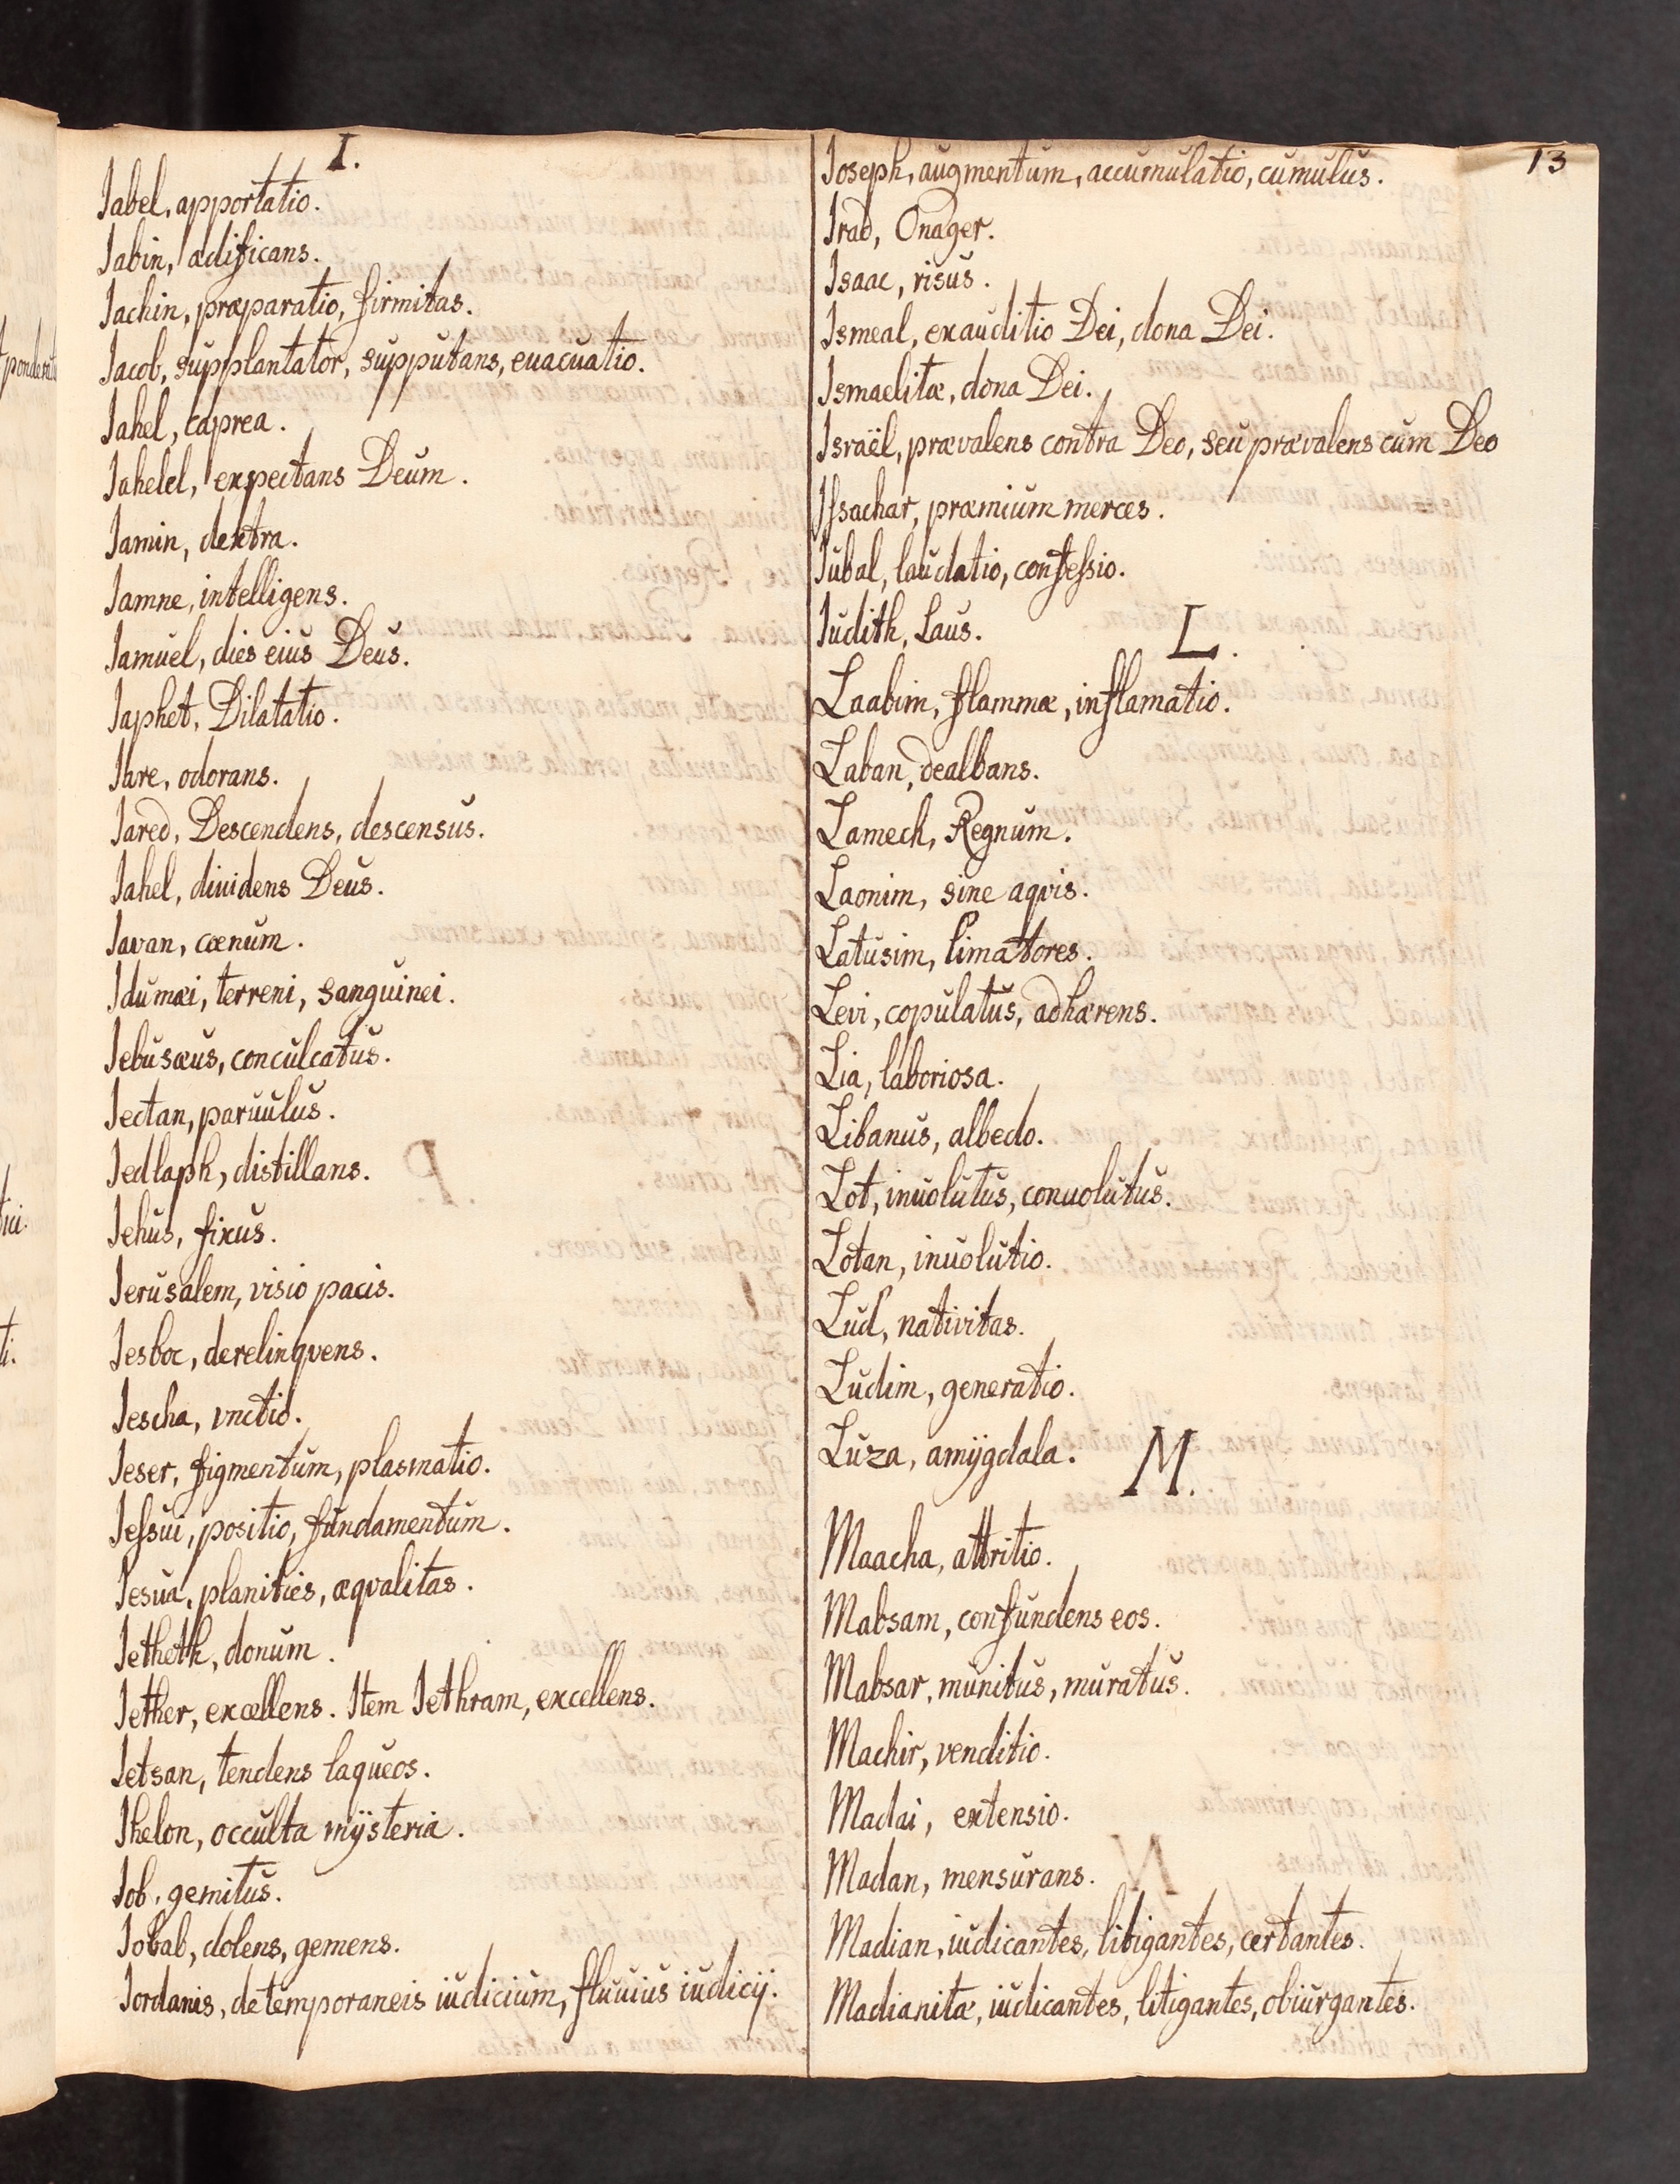 13
I.
Iabel, apportatio.
Iabin, ædificans.
Iachin, præparatio, firmitas.
Iacob, supplantator, supputans, euacuatio.
Iahel, caprea.
Iahelel, expectans Deum.
Iamin, dextra.
Iamne, intelligens.
Iamuel, dies eius Deus.
Iaphet, Dilatatio.
Ihre, odorans.
Iared, Descendens, descensus.
Iahel, diuidens Deus.
Iavan, cœnum.
Idumæi, terreni, sanguinei.
Iebusæus, conculcatus.
Iectan, paruulus.
Iedlaph, distillans.
Iehus, fixus.
Ierusalem, visio pacis.
Iesboc, derelinqvens.
Iescha, vnctio.
Ieser, figmentum, plasmatio.
Ieſsui, positio, fundamentum.
Iesua, planities, æqvalitas.
Ietheth, donum.
Iether, excellens. Item Iethram, excellens.
Ietsan, tendens laqueos.
Ihelon, occulta mÿsteria.
Iob, gemitus.
Iobab, dolens, gemens.
Iordanis, detemporaneis iudicium, fluuius iudicij.
Ioseph, augmentum, accumulatio, cumulus.
Irad, Onager.
Isaac, risus.
Ismeal, exauditio Dei, dona Dei.
Ismaelitæ, dona Dei.
Israël, prævalens contra Deo, seu prævalens cum Deo
Iſsachar, præmium merces.
Iubal, laudatio, confeſsio.
Iudith, Laus.
L.
Laabim, flammæ, inflamatio.
Laban, dealbans.
Lamech, Regnum.
Laonim, sine aqvis.
Latusim, limattores.
Levi, copulatus, adhærens.
Lia, laboriosa.
Libanus, albedo.
Lot, inuolutus, conuolutus.
Lotan, inuolutio.
Lud, nativitas.
Ludim, generatio.
Luza, amÿgdala.
M.
Maacha, attritio.
Mabsam, confundens eos.
Mabsar, munitus, muratus.
Machir, venditio.
Madai, extensio.
Madan, mensurans.
Madian, iudicantes, litigantes, certantes.
Madianitæ, iudicantes, litigantes, obiurgantes.